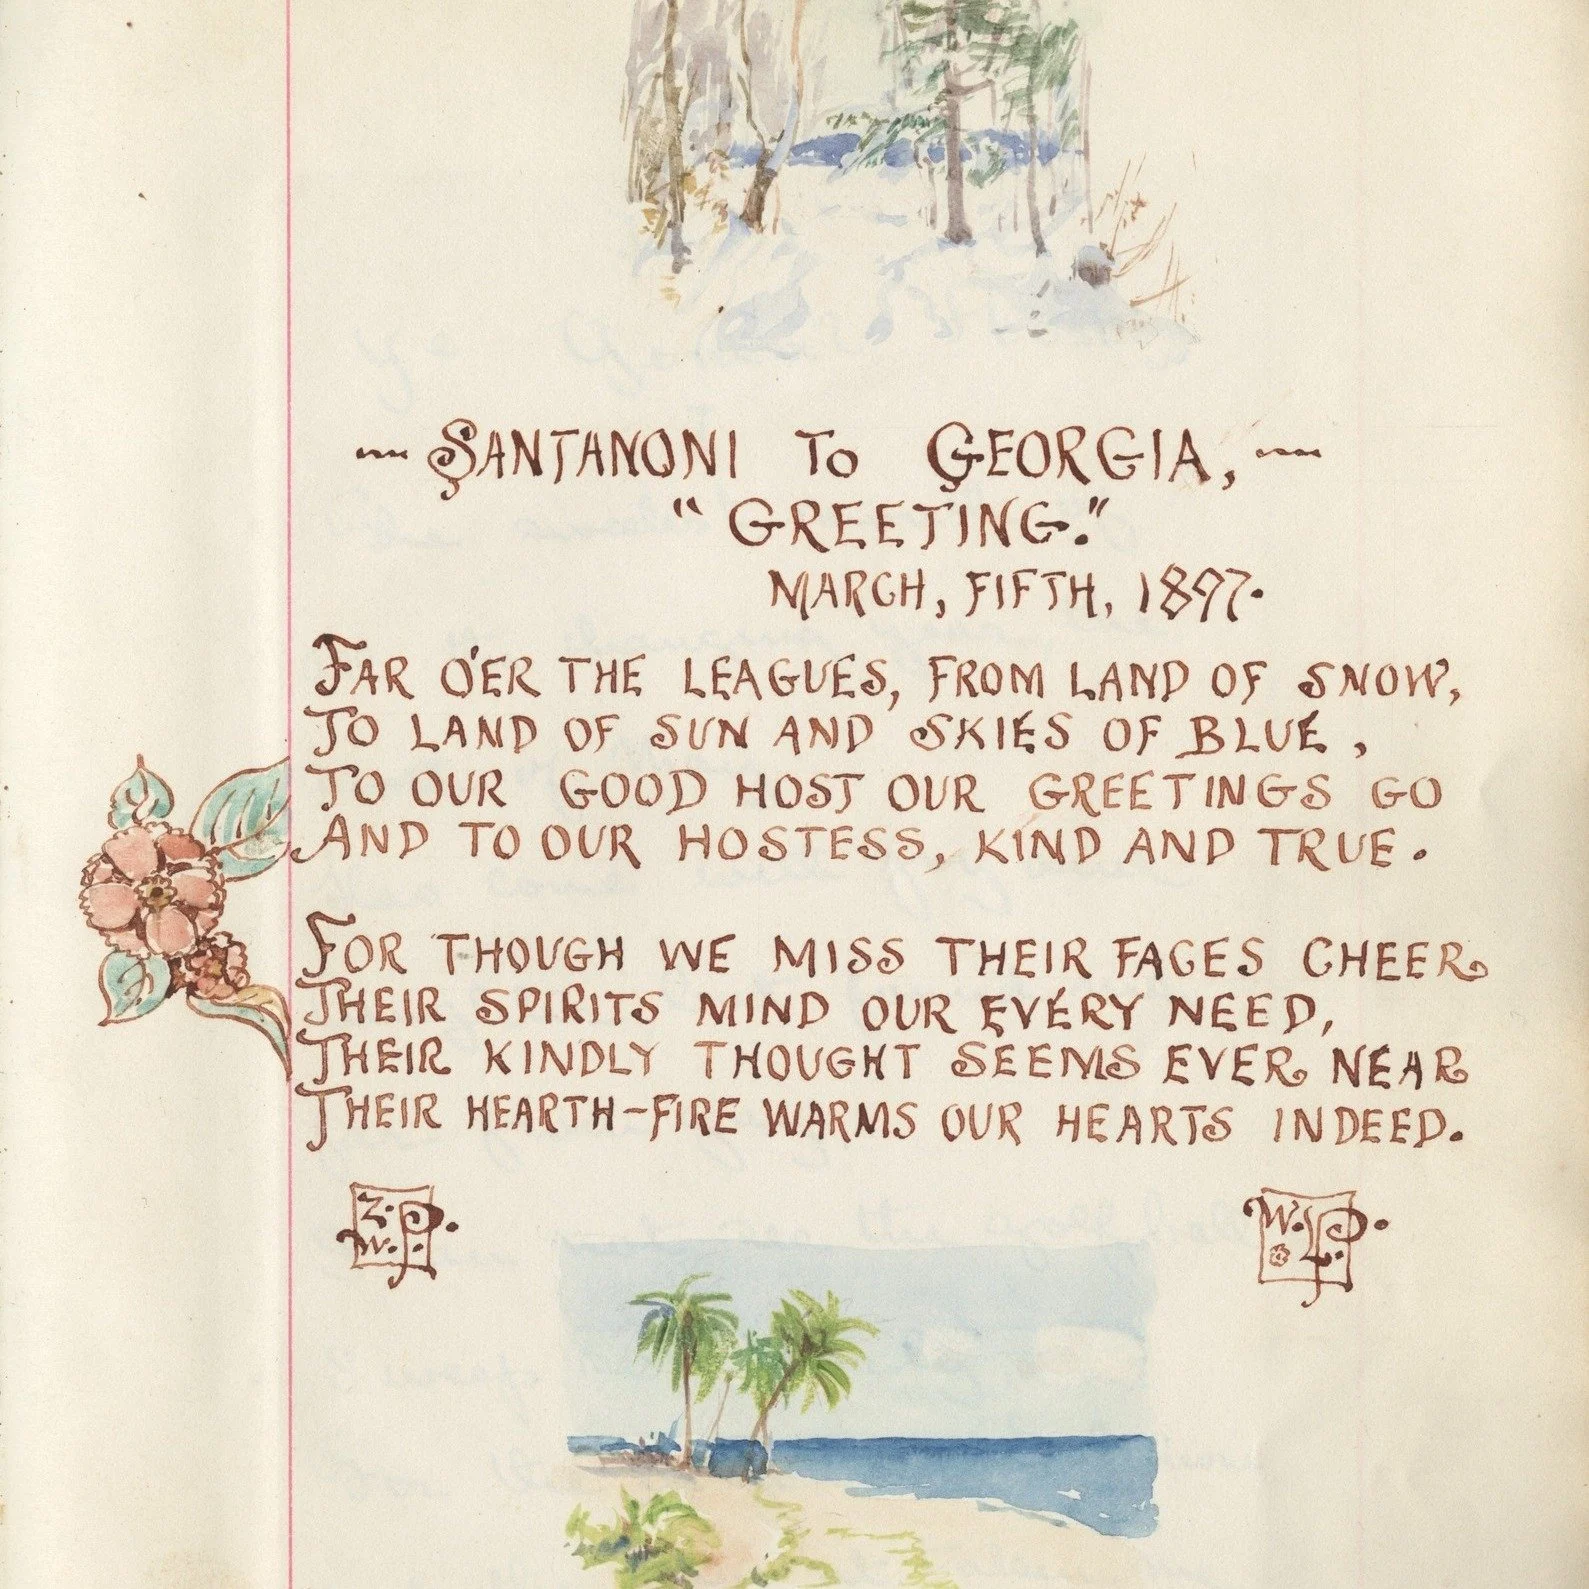 ~ SANTANONI TO GEORGIA, ~
"GREETING."
MARCH, FIFTH, 1897.
FAR O'ER THE LEAGUES, FROM LAND OF SNOW,
TO LAND OF SUN AND SKIES OF BLUE,
TO OUR GOOD HOST OUR GREETINGS GO
AND TO OUR HOSTESS, KIND AND TRUE.
FOR THOUGH WE MISS THEIR FACES CHEER
THEIR SPIRITS MIND OUR EVERY NEED,
THEIR KINDLY THOUGHT SEEMS EVER NEAR
THEIR HEARTH-FIRE WARMS OUR HEARTS INDEED.